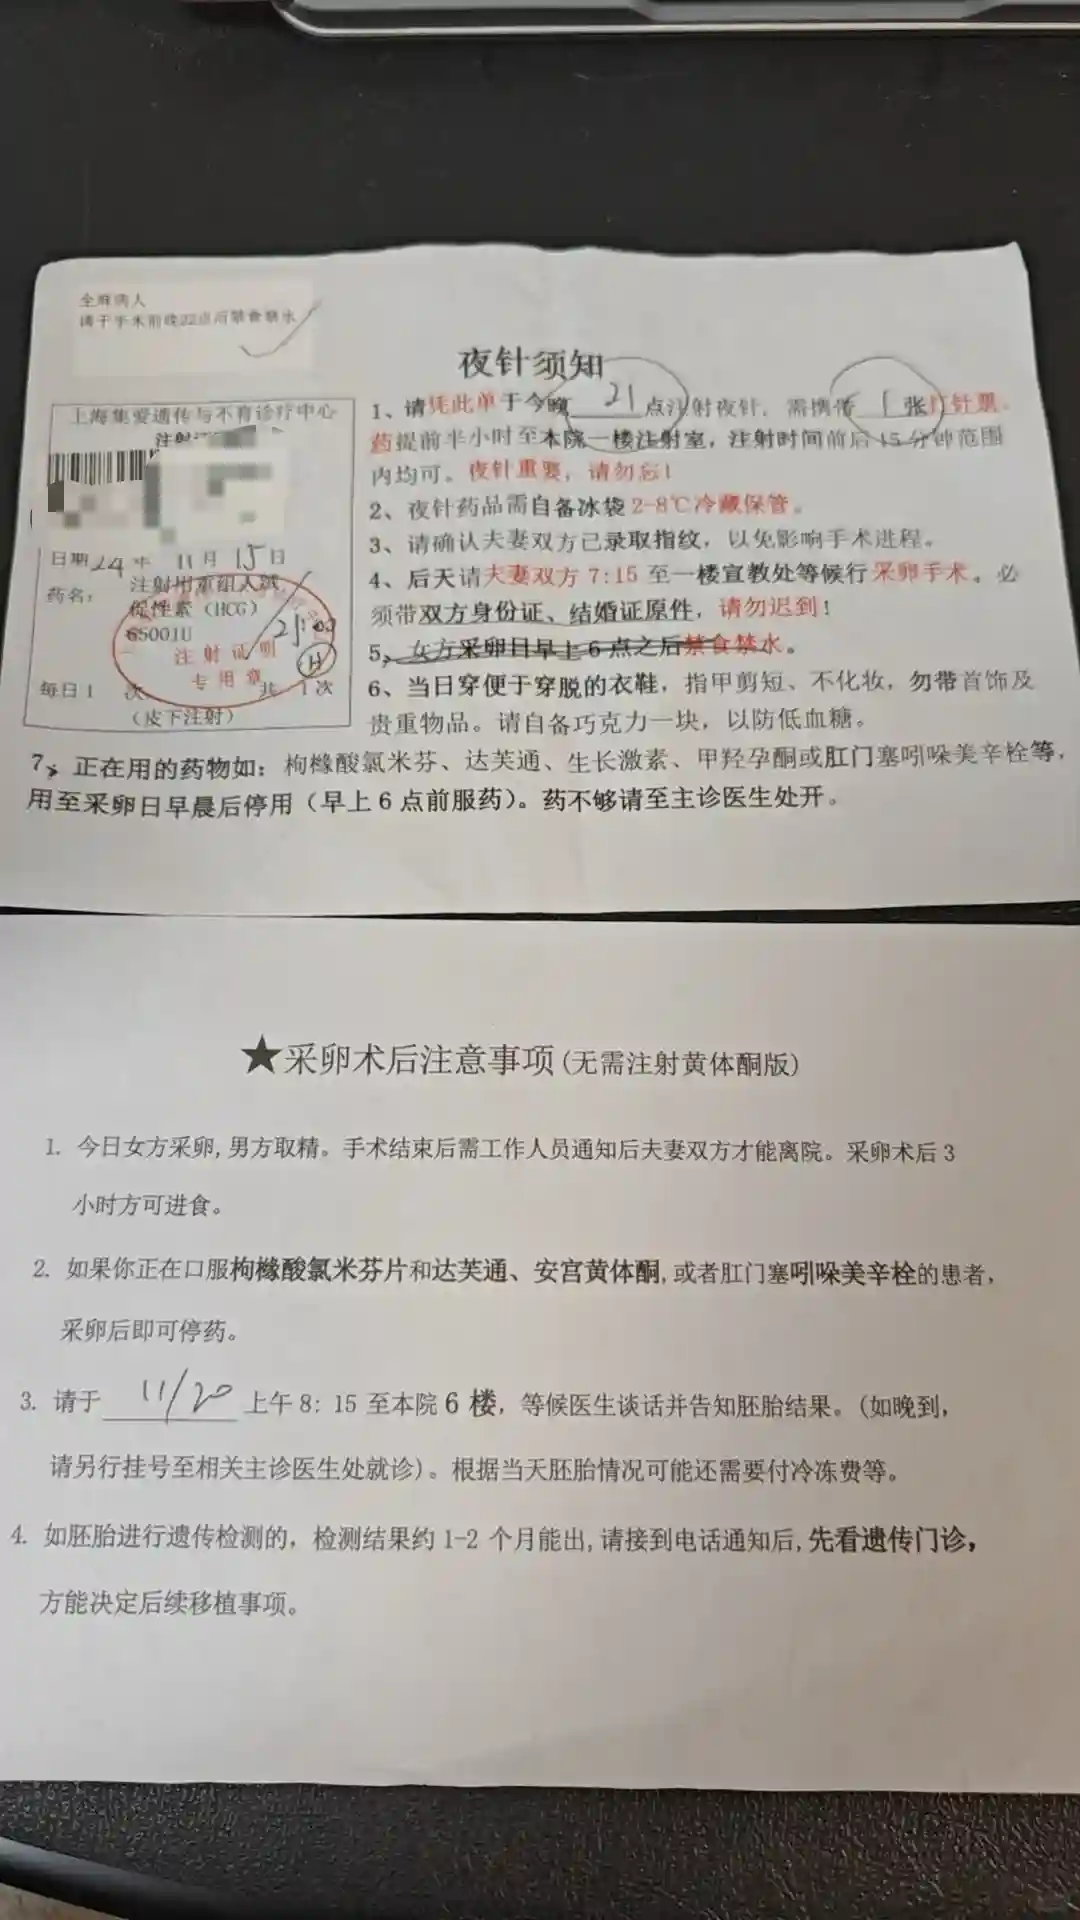 全麻病人
请于手术前晚22点后禁食禁水
夜针须知
上海集爱遗传与不育诊疗中心
注射
日期24年 11月15日
药名：
注射用重组人绒
促性素（HCG）
6500IU
21:00
注射证明
专用章
每日1 次 共 1次
（皮下注射）
1、请凭此单于今晚 21 点注射夜针，需携带 1 张打针票、
药提前半小时至本院一楼注射室，注射时间前后15分钟范围
内均可。夜针重要，请勿忘！
2、夜针药品需自备冰袋2-8℃冷藏保管。
3、请确认夫妻双方已录取指纹，以免影响手术进程。
4、后天请夫妻双方7:15至一楼宣教处等候行采卵手术。必
须带双方身份证、结婚证原件，请勿迟到！
5、女方采卵日早上6点之后禁食禁水。
6、当日穿便于穿脱的衣鞋，指甲剪短、不化妆，勿带首饰及
贵重物品。请自备巧克力一块，以防低血糖。
7、正在用的药物如：枸橼酸氯米芬、达芙通、生长激素、甲羟孕酮或肛门塞吲哚美辛栓等，
用至采卵日早晨后停用（早上6点前服药）。药不够请至主诊医生处开。
★采卵术后注意事项(无需注射黄体酮版)
1. 今日女方采卵,男方取精。手术结束后需工作人员通知后夫妻双方才能离院。采卵术后3
小时方可进食。
2. 如果你正在口服枸橼酸氯米芬片和达芙通、安宫黄体酮,或者肛门塞吲哚美辛栓的患者，
采卵后即可停药。
3. 请于 11/20 上午8：15至本院6楼，等候医生谈话并告知胚胎结果。(如晚到，
请另行挂号至相关主诊医生处就诊)。根据当天胚胎情况可能还需要付冷冻费等。
4. 如胚胎进行遗传检测的，检测结果约1-2个月能出,请接到电话通知后,先看遗传门诊，
方能决定后续移植事项。